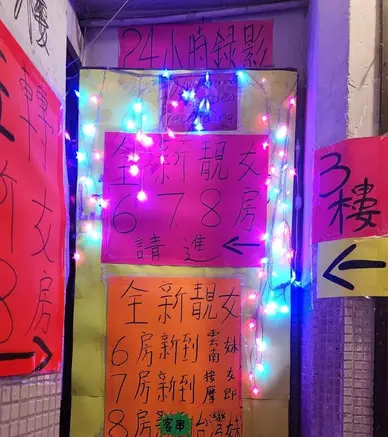 樓
轉
新 女
8 房
24小時錄影
24 hour
recording
全新靚女
6 7 8 房
請進
3
樓
全新靚女
6房新到雲南妹
7房新到按摩女郎
8房新 台灣妹
客串